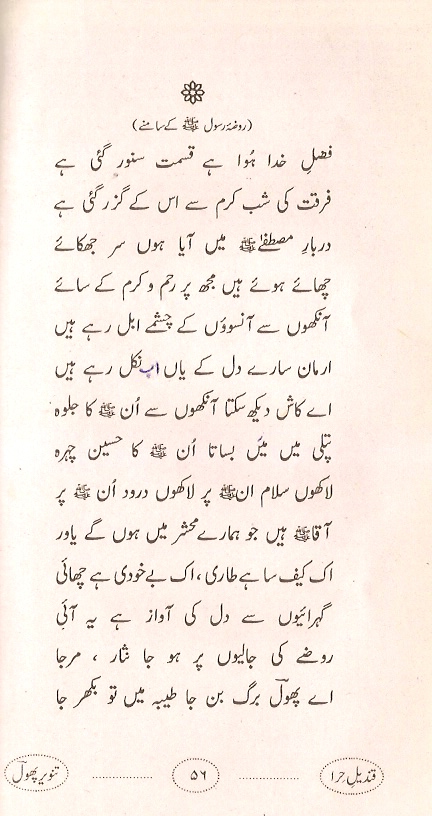 (روضۂ رسول ﷺ کے سامنے)
فضلِ خدا ہُوا ہے قسمت سنور گئی ہے
فرقت کی شب کرم سے اس کے گزر گئی ہے
دربارِ مصطفےٰﷺ میں آیا ہوں سر جھکائے
چھائے ہوئے ہیں مجھ پر رحم و کرم کے سائے
آنکھوں سے آنسوؤں کے چشمے ابل رہے ہیں
ارمان سارے دل کے یاں اب نکل رہے ہیں
اے کاش دیکھ سکتا آنکھوں سے اُن ﷺ کا جلوہ
پتلی میں میں بساتا اُن ﷺ کا حسین چہرہ
لاکھوں سلام انﷺ پر لاکھوں درود اُن ﷺ پر
آقاﷺ ہیں جو ہمارے محشر میں ہوں گے یاور
اک کیف سا ہے طاری ، اک بے خودی ہے چھائی
گہرائیوں سے دل کی آواز ہے یہ آئی
روضے کی جالیوں پر ہو جا نثار ، مرجا
اے پھولؔ برگ بن جا طیبہ میں تو بکھر جا
قندیلِ حرا ۵۶ تنویر پھولؔ